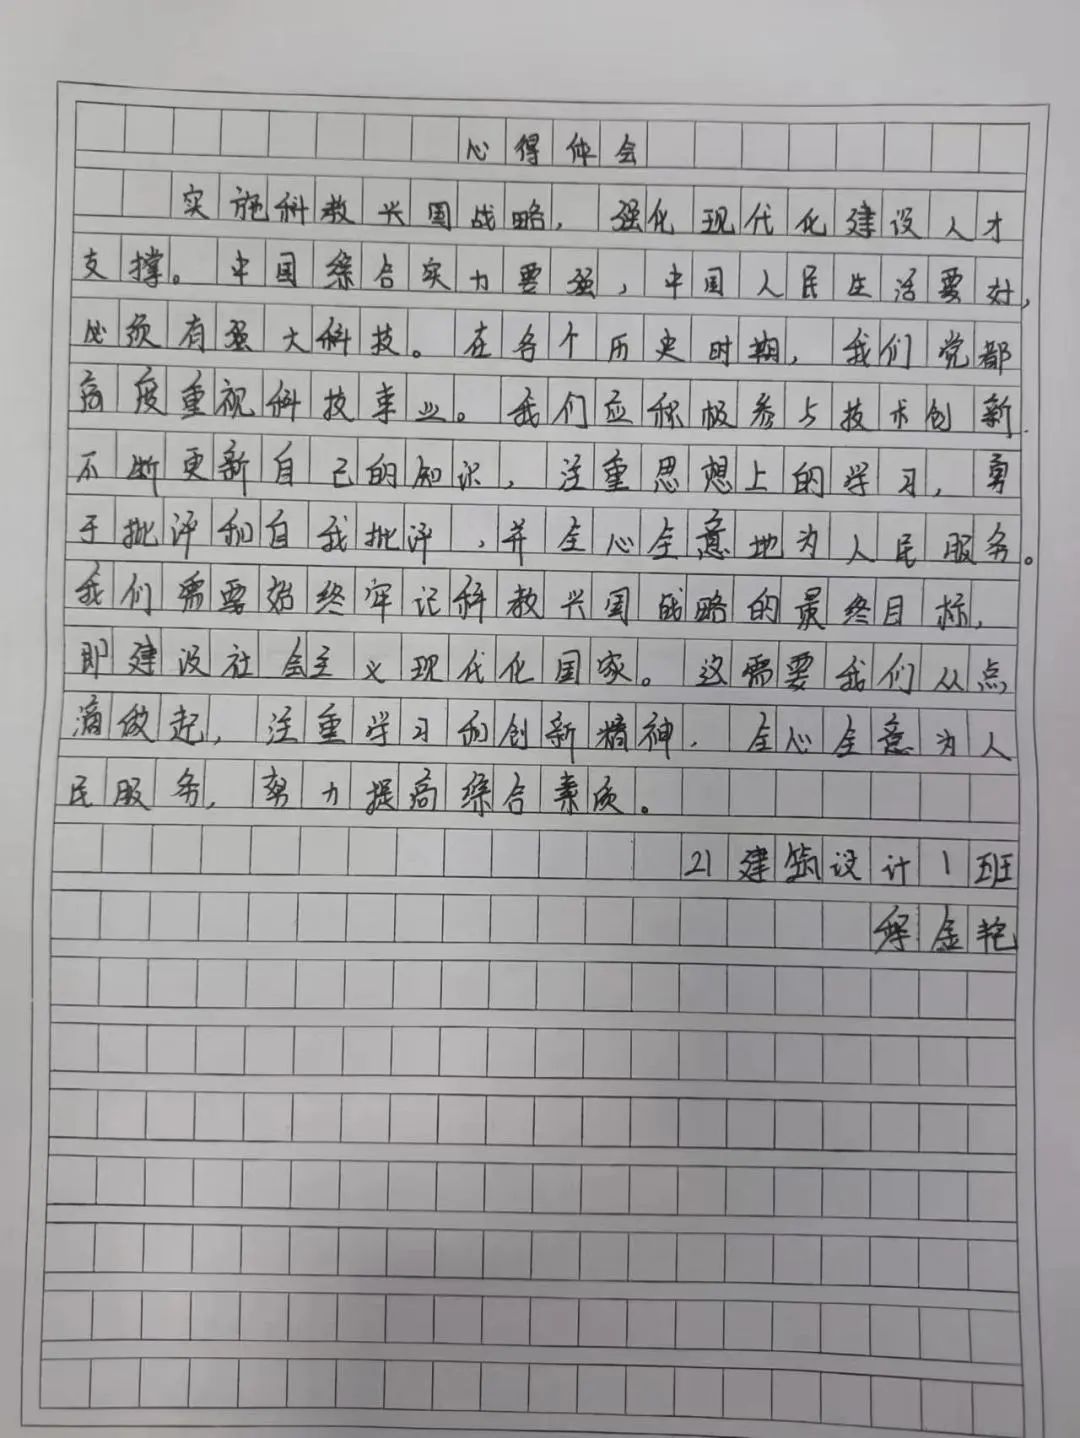 心得体会
实施科教兴国战略，强化现代化建设人才
支撑。中国综合实力要强，中国人民生活要好，
必须有强大科技。在各个历史时期，我们党都
高度重视科技事业。我们应积极参与技术创新，
不断更新自己的知识，注重思想上的学习，勇
于批评和自我批评，并全心全意地为人民服务。
我们需要始终牢记科教兴国战略的最终目标，
即建设社会主义现代化国家。这需要我们从点
滴做起，注重学习和创新精神，全心全意为人
民服务，努力提高综合素质。
21建筑设计1班
金艳